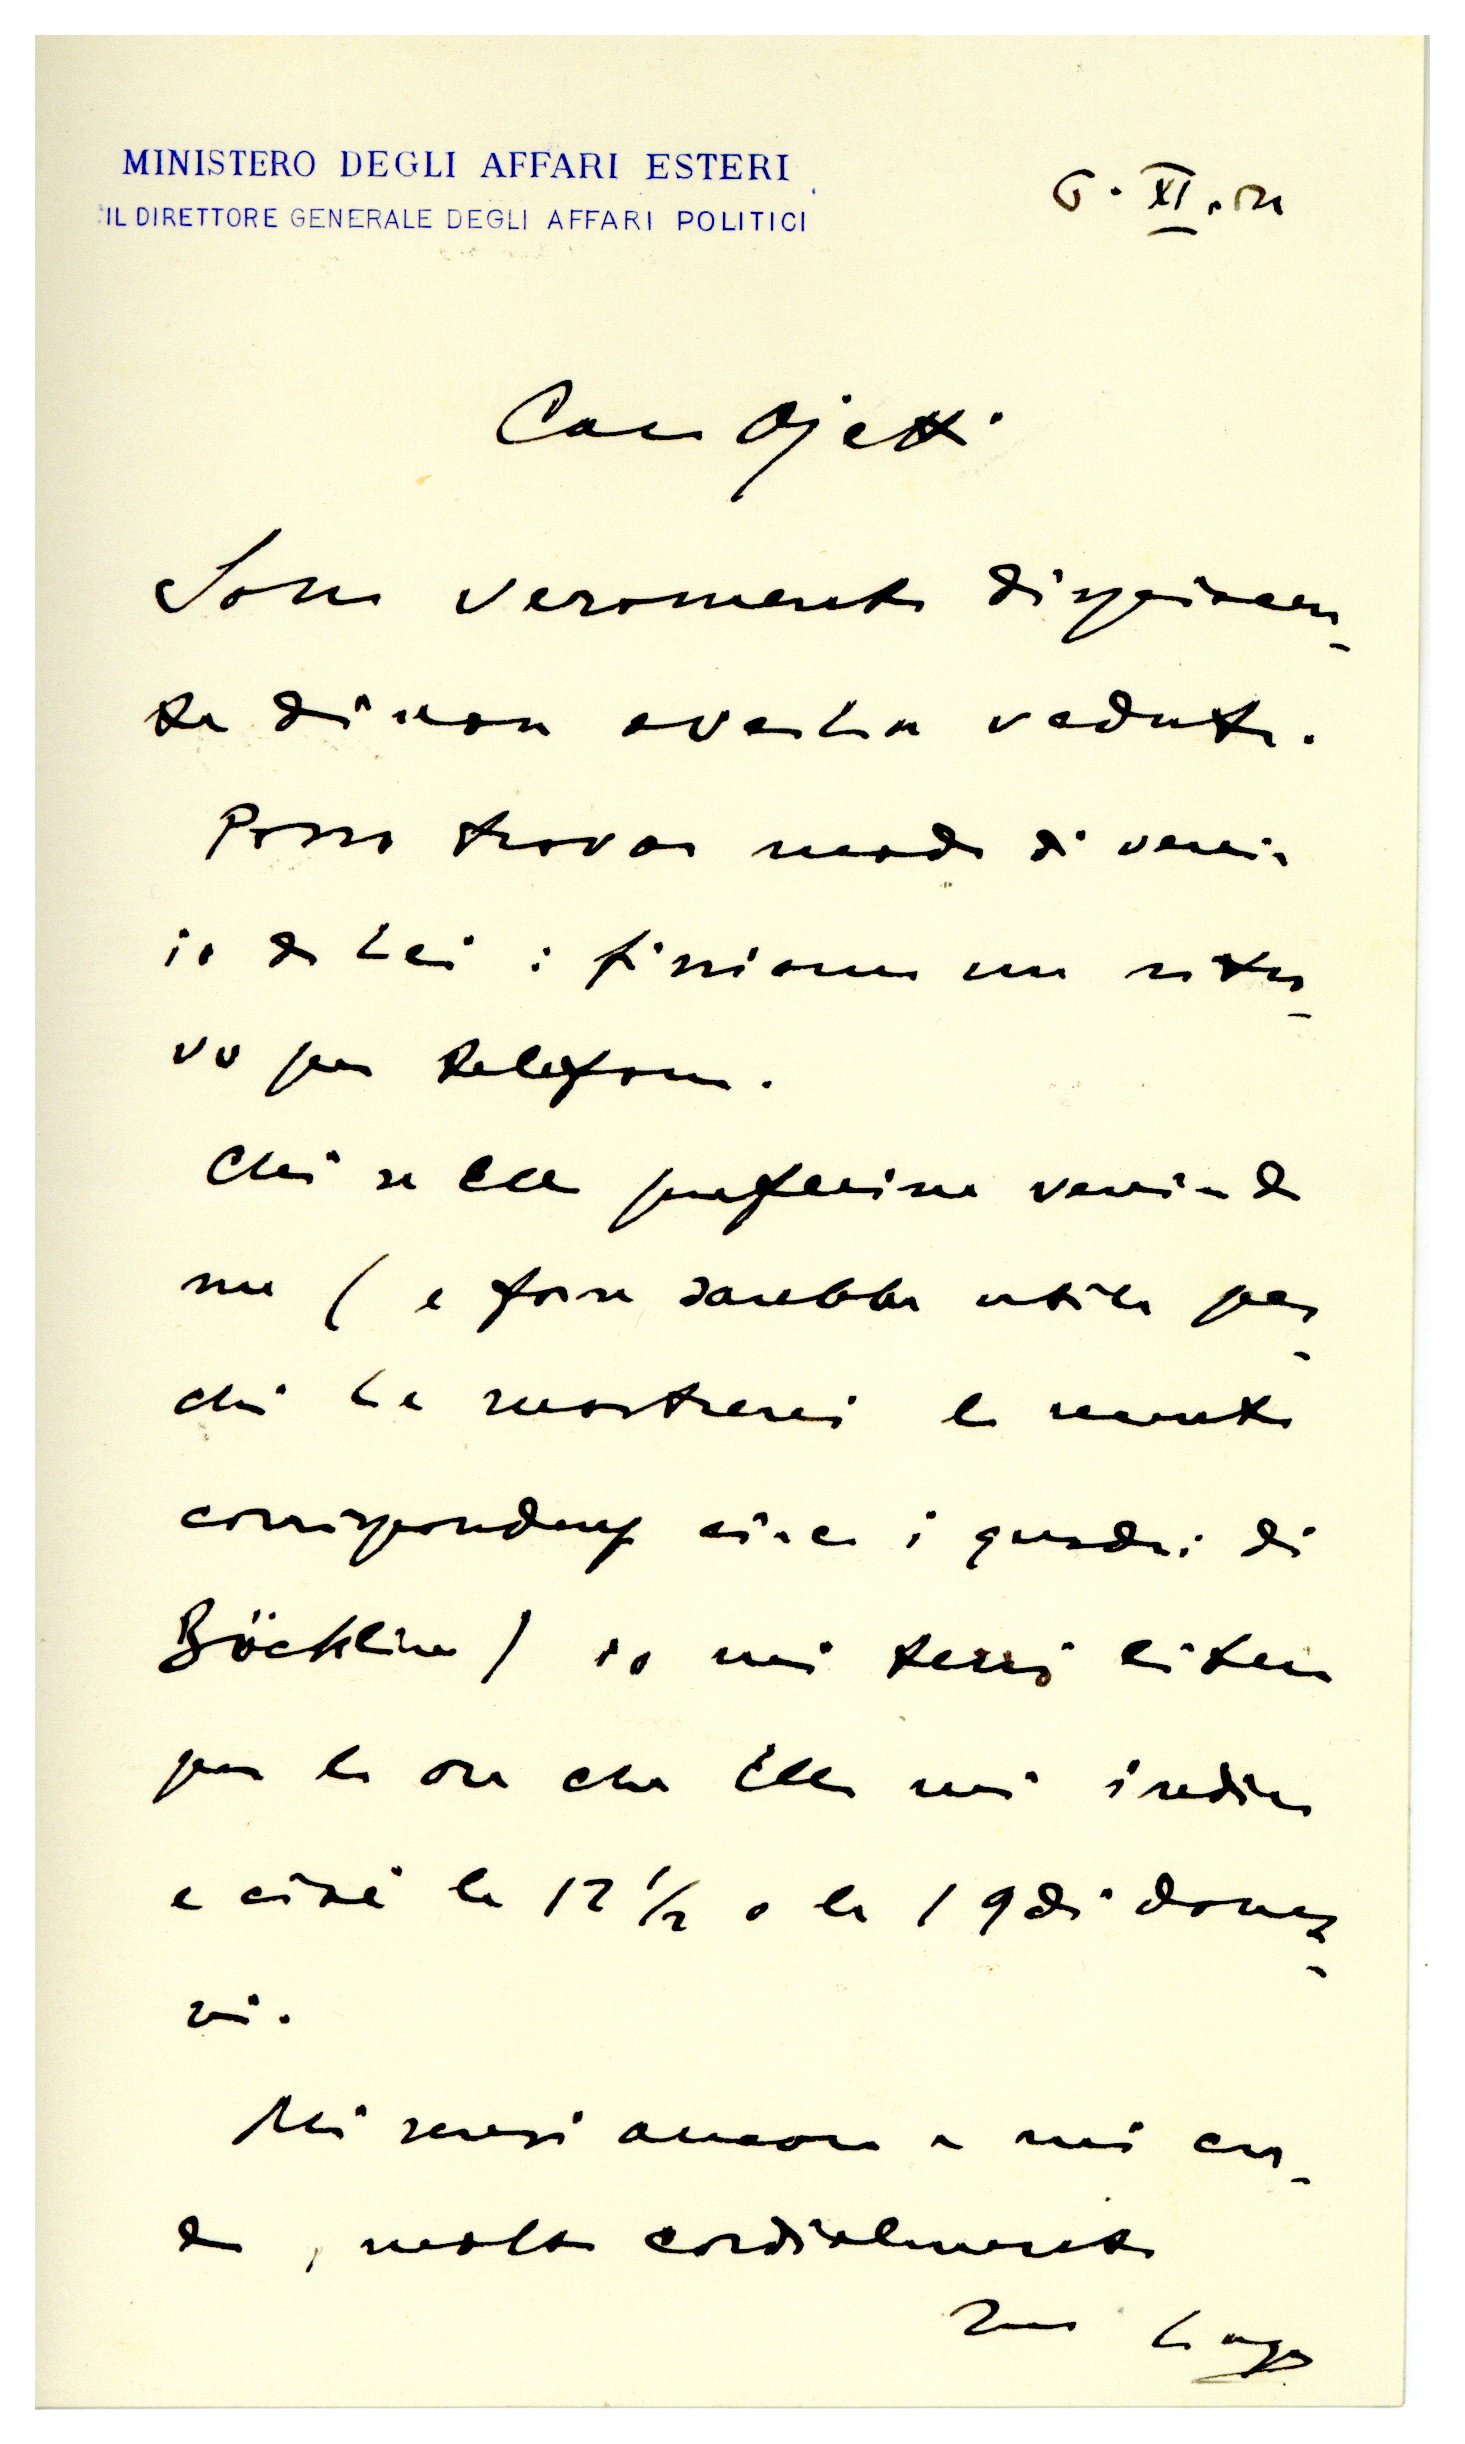 MINISTERO DEGLI AFFARI ESTERI
IL DIRETTORE GENERALE DEGLI AFFARI POLITICI
6. XI.
Caro Ojetti
Sono veramente dispiacen-
te di non averLa veduta.
Posso trovar modo di venir
io da Lei: fissiamo un ritro-
vo per telefono.
Chè se Ella preferisse venir da
me (e forse sarebbe utile per-
chè Le mostrerei la recente
corrispondenza circa i quadri di
Böcklin) io mi terrei libero
per le ore che Ella mi indica
e cioè le 12 1/2 o le 19 di doma-
ni.
Mi scusi ancora e mi cre-
da, molto cordialmente
Suo Lago